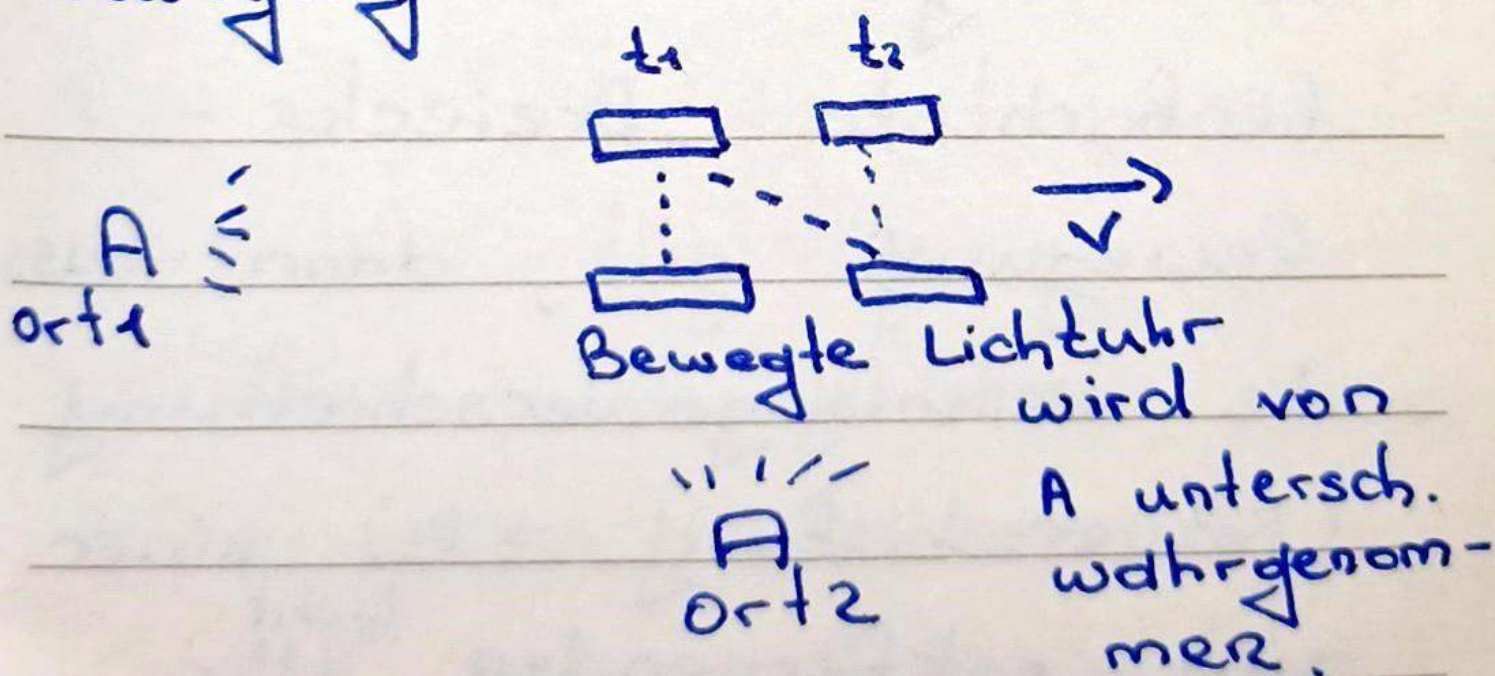 t1 t2
A
Ort1
v
Bewegte Lichtuhr
wird von
A untersch.
wahrgenom-
men.
A
Ort2